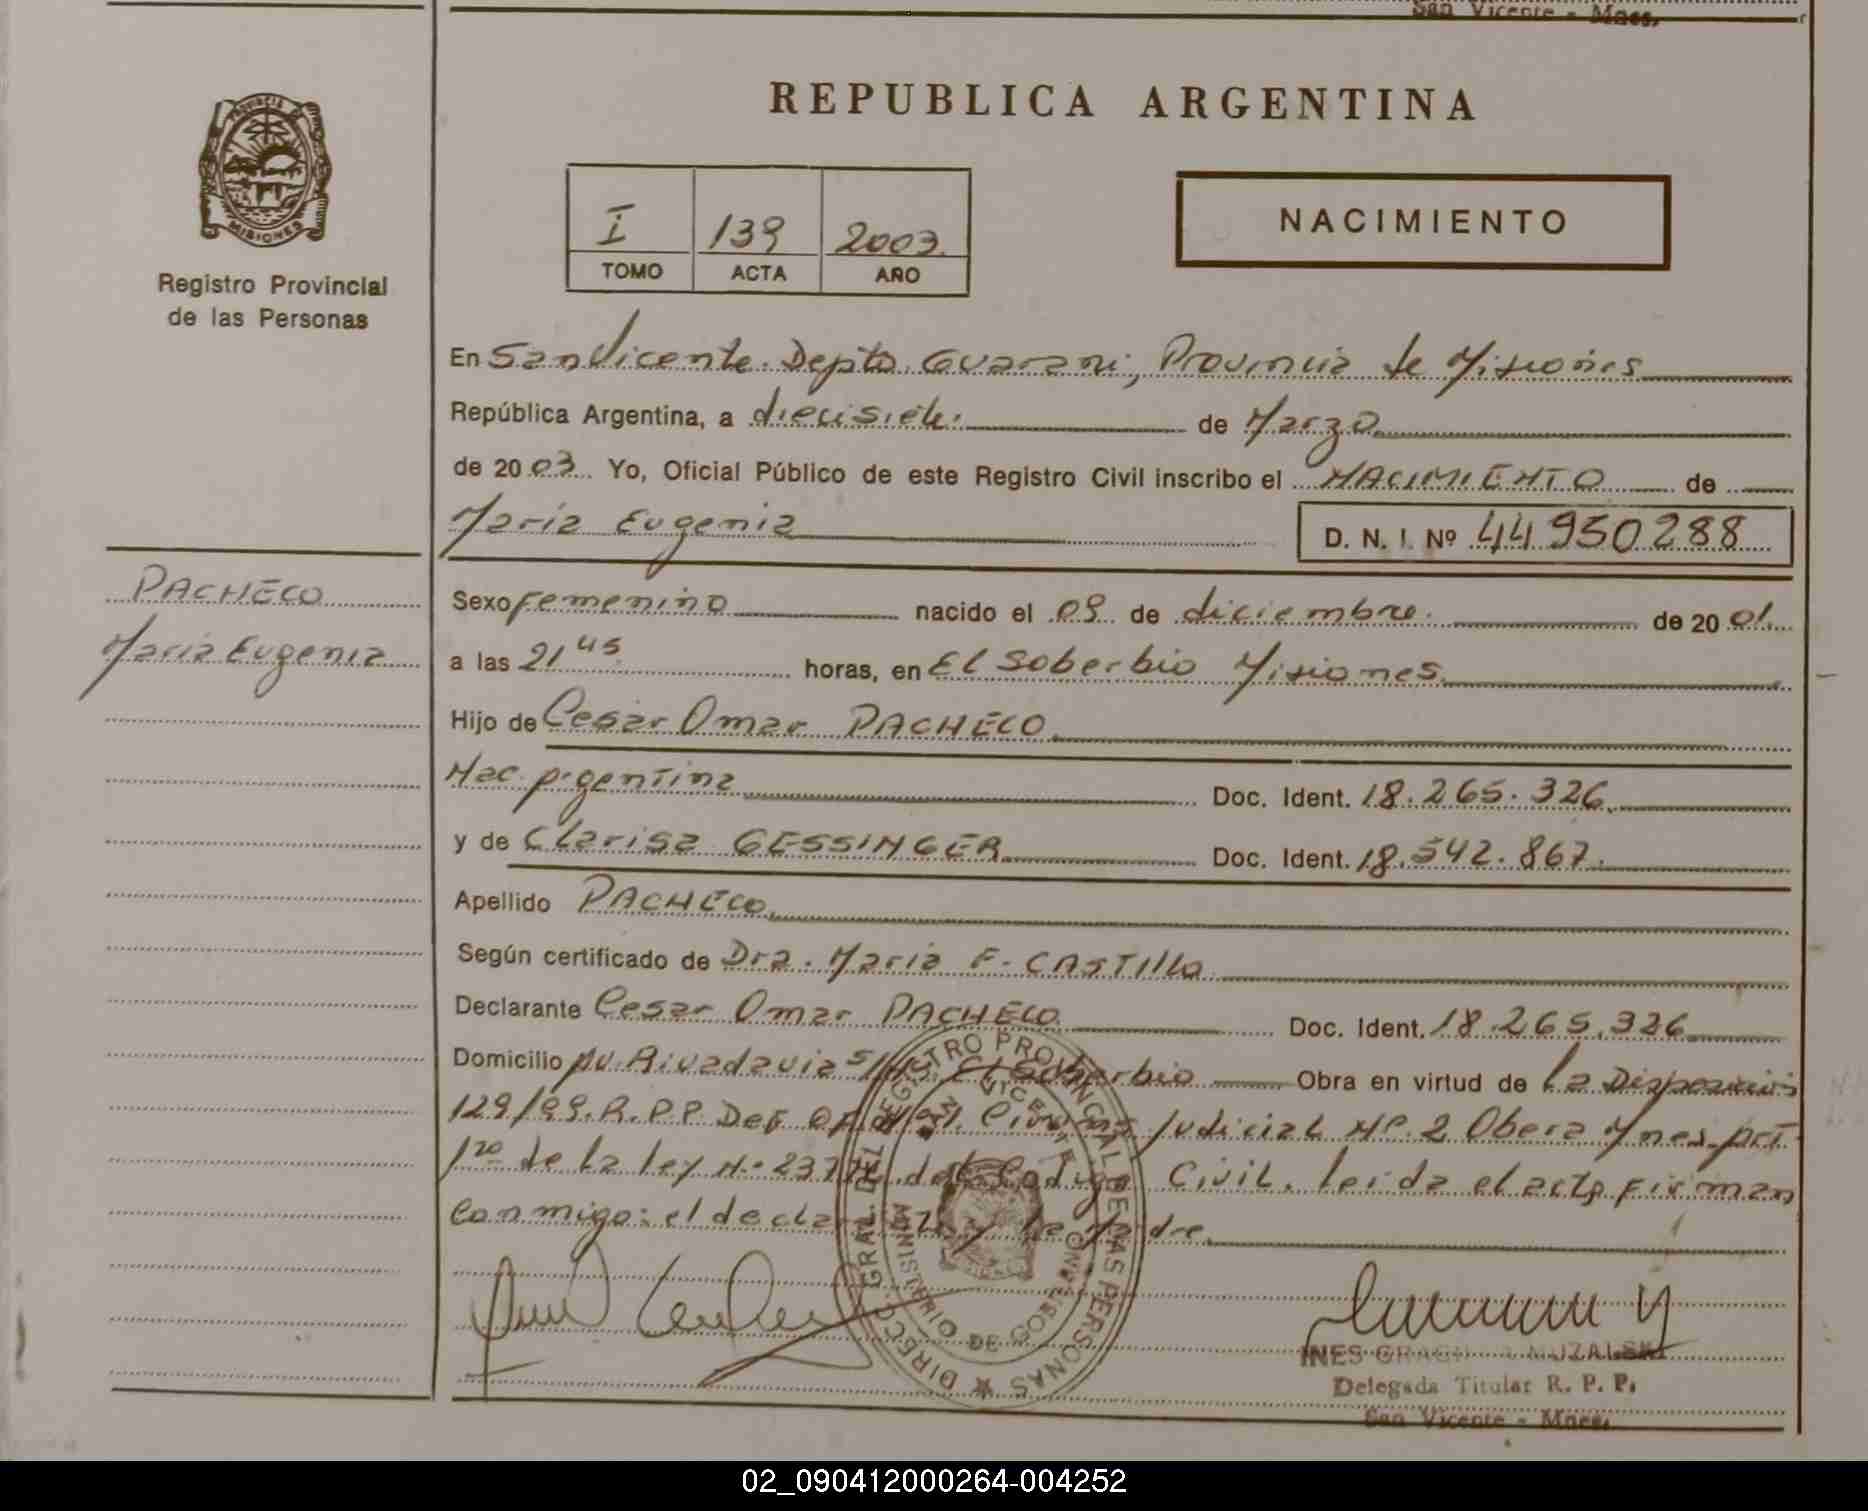 San Vicente - Mnes.
REPUBLICA ARGENTINA
PROVINCIA DE
MISIONES
Registro Provincial
de las Personas
I 139 2003.
TOMO ACTA AÑO
NACIMIENTO
En San Vicente. Depto. Guarani, Provincia de Misiones
República Argentina, a diecisiete. de Marzo
de 2003. Yo, Oficial Público de este Registro Civil inscribo el NACIMIENTO de
Maria Eugenia D. N. I. Nº 44950288
PACHECO
Maria Eugenia
Sexo femenino nacido el 09 de diciembre. de 2001.
a las 21 45 horas, en El Soberbio Misiones.
Hijo de Cesar Omar PACHECO.
Nac. Argentina Doc. Ident. 18.265.326.
y de Clarisa GESSINGER Doc. Ident. 18.542.867.
Apellido PACHECO
Según certificado de Dra. Maria F. CASTILLO
Declarante Cesar Omar PACHECO Doc. Ident. 18.265.326
Domicilio Av. Rivadavia S/Nº. El Soberbio Obra en virtud de la Disposición
129/99. R.P.P. Def. Of. Judicial Nº. 2 Obera Mnes. Art.
1ro de la ley N.º Civil. leida el acta firman
conmigo: el declarante y la Madre
DIRECC. GRAL. DEL REGISTRO PROVINCIAL DE LAS PERSONAS
SAN VICENTE
MINISTERIO DE GOBIERNO
INES MUZALSKI
Delegada Titular R. P. P.
San Vicente - Mnes.
02_090412000264-004252